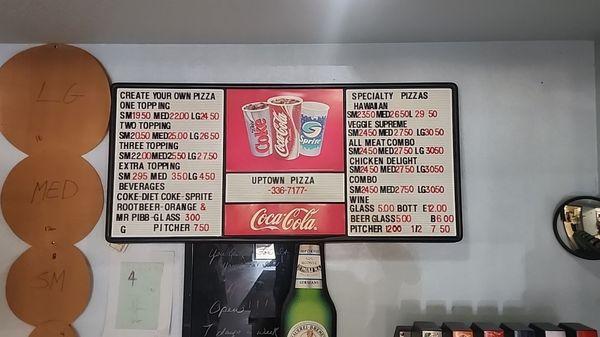 LG
MED
SM
CREATE YOUR OWN PIZZA
ONE TOPPING
SM 19 50 MED 22.00 LG 24 50
TWO TOPPING
SM 20 50 MED 25.00 LG 26 50
THREE TOPPING
SM 22.00 MED 25 50 LG 27.50
EXTRA TOPPING
SM 2 95 MED 3 50 LG 4 50
BEVERAGES
COKE-DIET COKE-SPRITE
ROOTBEER-ORANGE &
MR PIBB-GLASS 3 00
G PITCHER 7 50
Coke
Coca-Cola
Sprite
UPTOWN PIZZA
-336-7177-
Coca-Cola
SPECIALTY PIZZAS
HAWAIIAN
SM 23 50 MED 26 50 L 29 50
VEGGIE SUPREME
SM 24 50 MED 27 50 LG 30 50
ALL MEAT COMBO
SM 24 50 MED 27 50 LG 30 50
CHICKEN DELIGHT
SM 24 50 MED 27 50 LG 30 50
COMBO
SM 24 50 MED 27 50 LG 30 50
WINE
GLASS 5.00 BOTT E 12.00
BEER GLASS 5.00 B 6 00
PITCHER 12 00 1/2 7 50
4
Open!!!
7 days a week
GERMANY